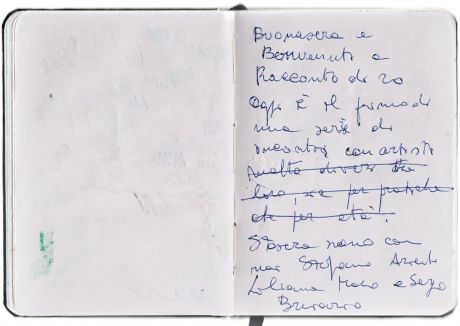 Buonasera e
Benvenuti a
Racconto di 20
Oggi È il primo di
una serie di
incontri con artisti
molto diversi tra
loro, sia per pratiche
che per età.
Stasera sono con
noi Stefano Arienti
Liliana Moro e